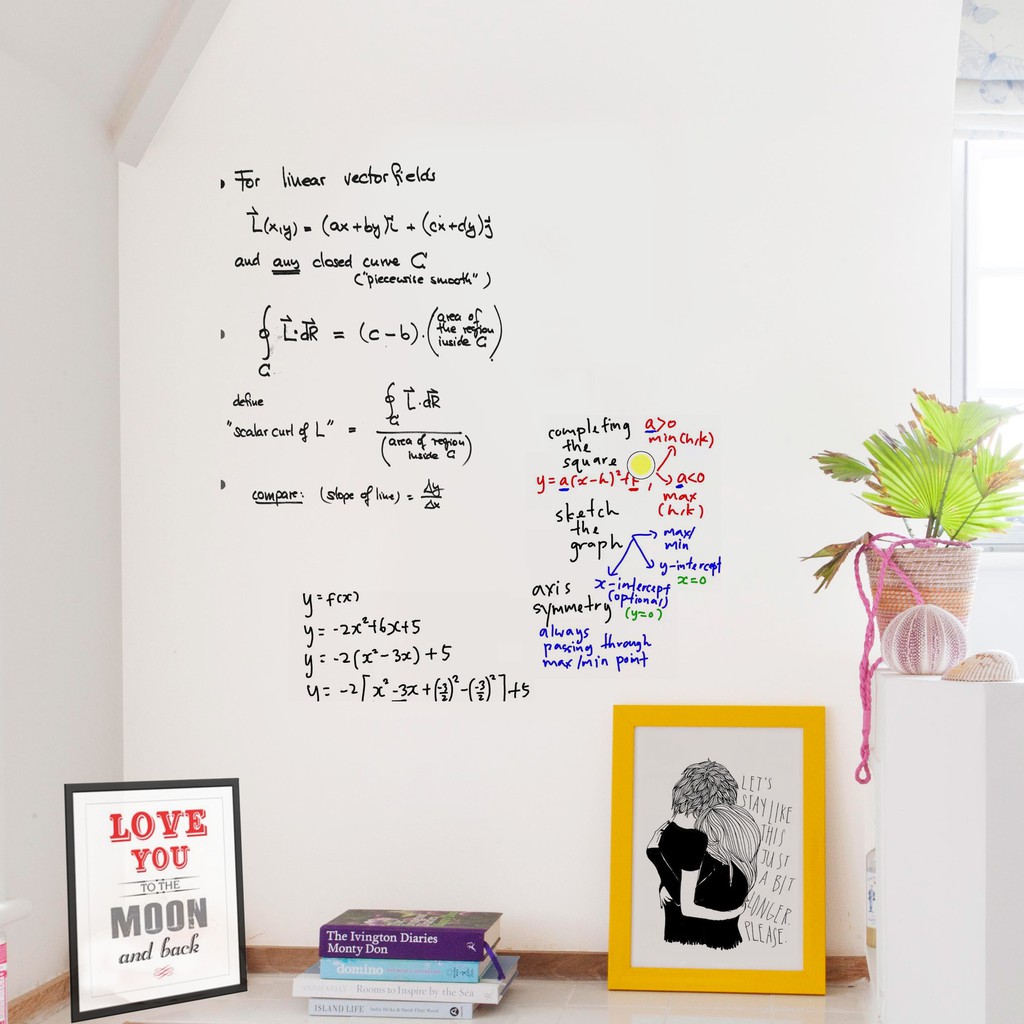 For linear vectorfields
L⃗(x,y) = (ax+by)i⃗ + (cx+dy)j⃗
and any closed curve C
("piecewise smooth")
∮_C L⃗·dR⃗ = (c-b)·(area of the region inside C).
define
"scalar curl of L" = ∮_C L⃗·dR⃗ / (area of region inside C)
compare: (slope of line) = Δy/Δx
completing
the
square
a>0
min(h,k)
y=a(x-h)²+k,
a<0
max
(h,k)
sketch
the
graph
max/
min
y-intercept
x=0
x-intercept
(optional)
(y=0)
axis
symmetry
always
passing through
max/min point
y=f(x)
y= -2x²+6x+5
y= -2(x²-3x)+5
y= -2[x²-3x+(-3/2)²-(-3/2)²]+5
LOVE
YOU
TO THE
MOON
and back
The Ivington Diaries
Monty Don
domino
Rooms to Inspire by the Sea
ISLAND LIFE
LET'S
STAY LIKE
THIS
JUST
A BIT
LONGER.
PLEASE.